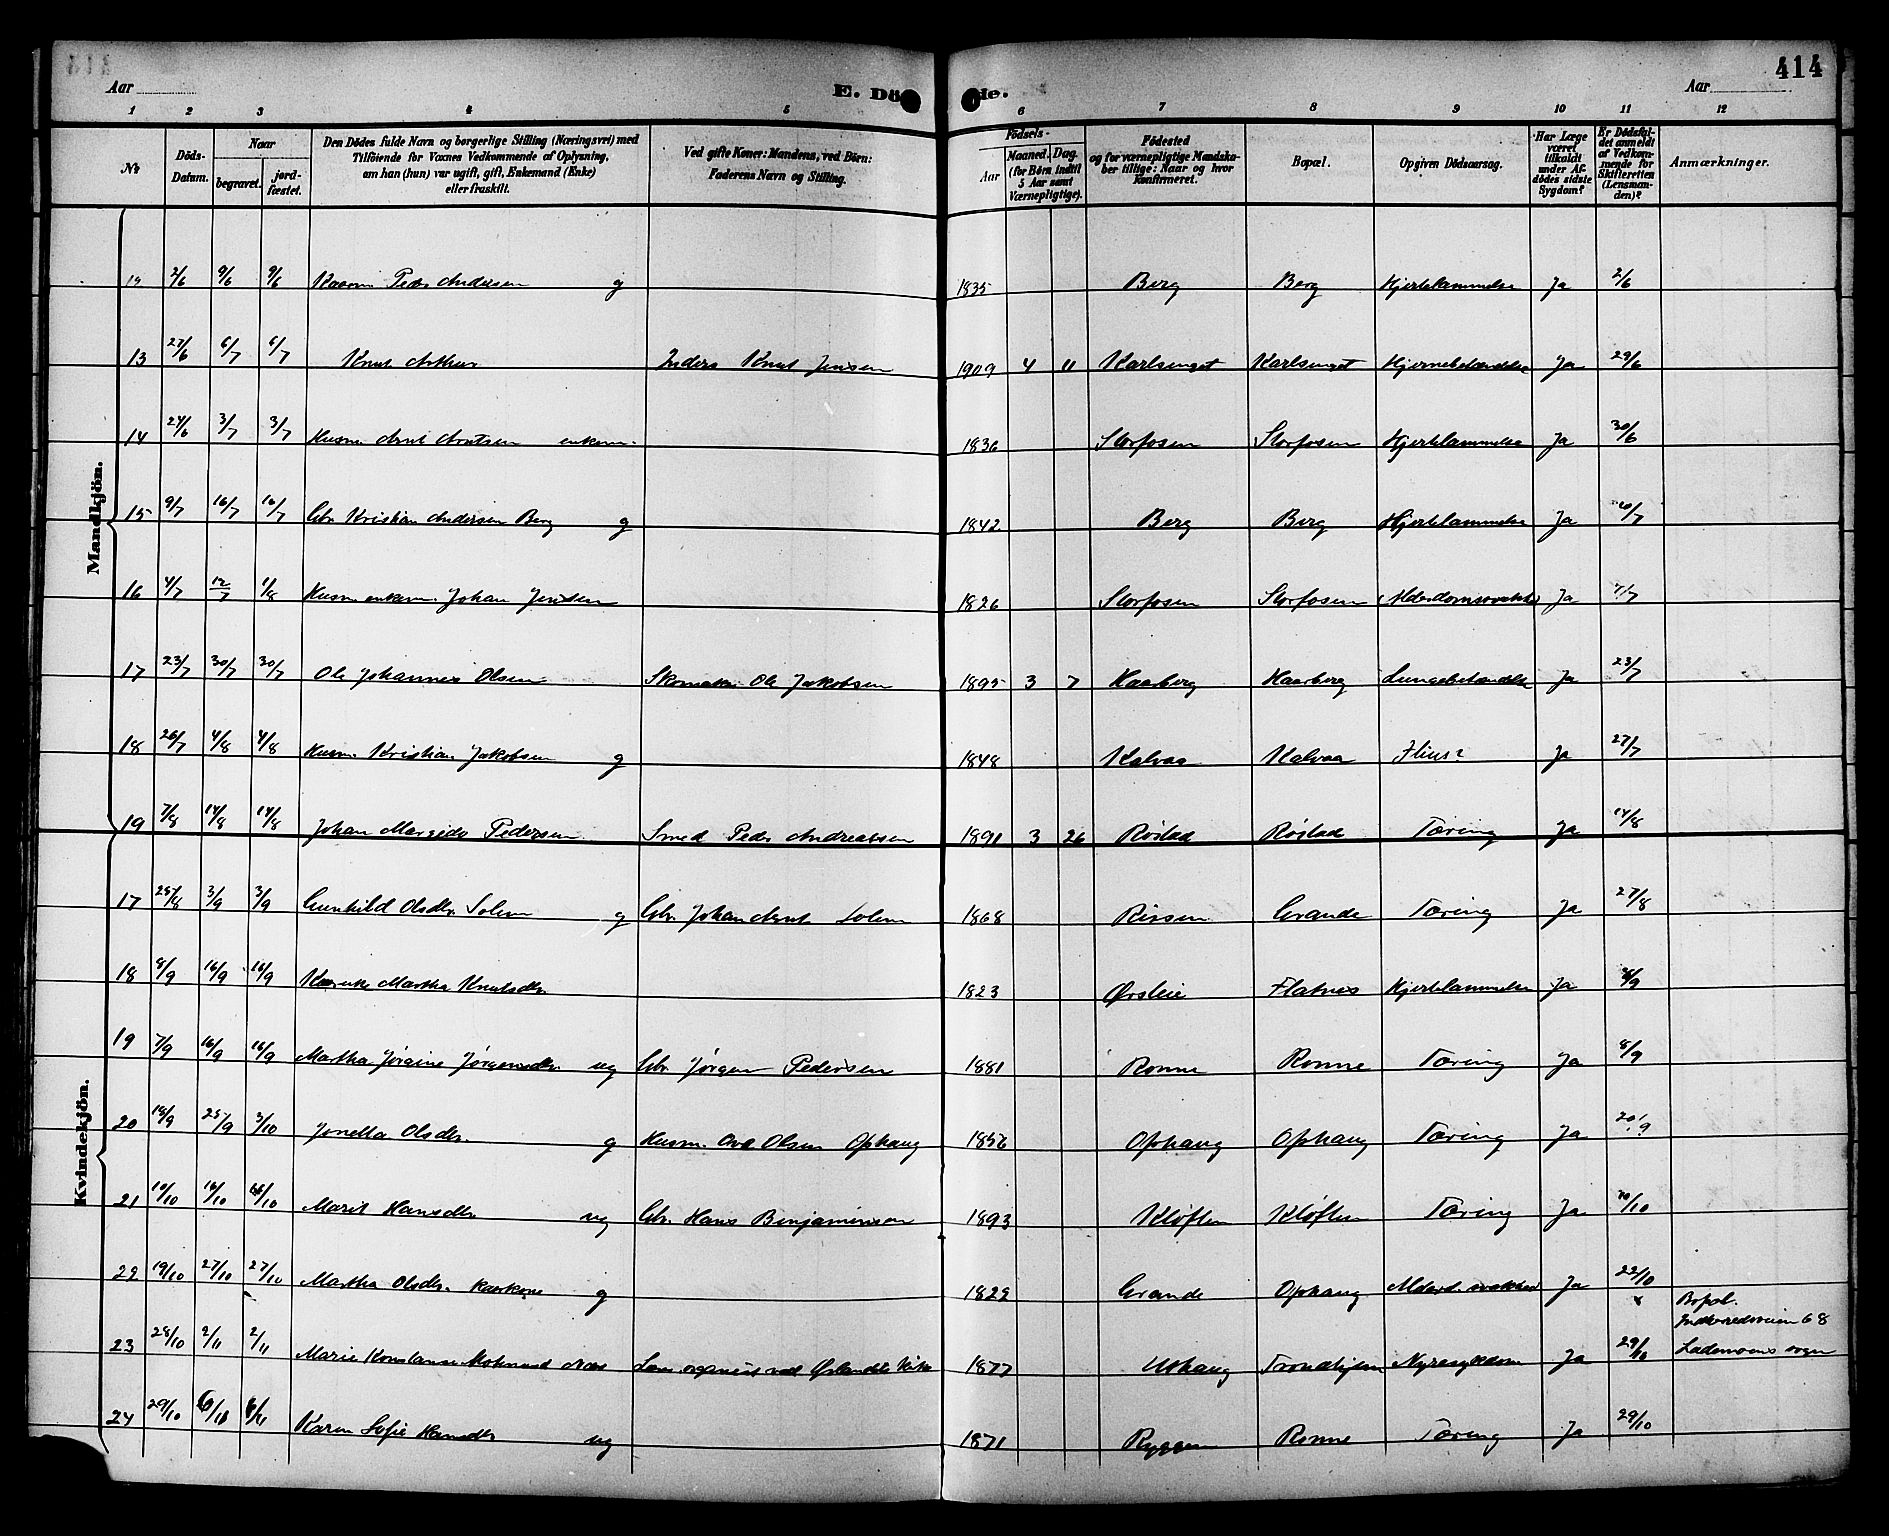 414
Aar
E. Dö de.
Aar
1 2 3 4 5 6 7 8 9 10 11 12
No
Döds-Datum.
Naar
begravet.
jord-fæstet.
Den Dödes fulde Navn og borgerlige Stilling (Næringsvei) med
Tilföiende for Voxnes Vedkommende af Oplysning,
om han (hun) var ugift, gift, Enkemand (Enke)
eller fraskilt.
Ved gifte Koner: Mandens, ved Börn:
Faderens Navn og Stilling.
Födsels-
Aar
Maaned. Dag.
(for Börn indtil
5 Aar samt
Værnepligtige).
Födested
og for værnepligtige Mandska-
ber tillige: Naar og hvor
Konfirmeret.
Bopæl.
Opgiven Dödsaarsag.
Har Læge
været
tilkaldt
under Af-
dödes sidste
Sygdom?
Er Dödsfal-
det anmeldt
af Vedkom-
mende for
Skifteretten
(Lensman-
den)?
Anmærkninger.
Mandkjön.
12 2/6 9/6 9/6 Peder Andersen g 1835 Berg Berg Hjertelammelse Ja 2/6
13 27/6 6/7 6/7 Knut Arthur Inders Knut Jensen 1909 4 11 Karlsenget Karlsenget Hjernebetændelse Ja 29/6
14 24/6 3/7 3/7 Husm. Arnt Arntsen enkem. 1836 Storfosen Storfosen Hjertelammelse Ja 30/6
15 9/7 16/7 16/7 Gbr. Kristian Andersen Berg g 1842 Berg Berg Hjertelammelse Ja 10/7
16 4/7 12/7 1/8 Husm. enkem. Johan Jensen 1826 Storfosen Storfosen Alderdomssvækkel Ja 7/7
17 23/7 30/7 30/7 Ole Johannes Olsen Skomaker Ole Jakobsen 1895 3 7 Haarberg Haarberg Lungebetændelse Ja 23/7
18 26/7 4/8 4/8 Husm. Kristian Jakobsen g 1848 Kalvaa Kalvaa Ilius? Ja 27/7
19 7/8 14/8 14/8 Johan Margido Pedersen Smed Peder Andreassen 1891 3 26 Røstad Røstad Tæring Ja 14/8
Kvindekjön.
17 25/8 3/9 3/9 Gunhild Olsdtr. Solem g Gbr. Johan Arnt Solem 1868 Rissen Grande Tæring Ja 27/8
18 8/9 16/9 16/9 Kaarenke Martha Knutsdtr. 1823 Ørsleie Flatnes Hjertelammelse Ja 8/9
19 7/9 16/9 16/9 Martha Jørgine Jørgensdtr. ug Gbr. Jørgen Pedersen 1881 Rønne Rønne Tæring Ja 8/9
20 18/9 25/9 3/10 Jonetta Olsdtr. g Husm. Ove Olsen Ophaug 1856 Ophaug Ophaug Tæring Ja 20/9
21 10/10 16/10 16/10 Marit Hansdtr. ug Gbr. Hans Benjaminsen 1893 Kløften Kløften Tæring Ja 10/10
22 19/10 27/10 27/10 Martha Olsdtr. kaarkone g 1829 Grande Ophaug Alderd. svækkelse Ja 22/10
23 28/10 2/11 2/11 Marie Konstanse Næs 1877 Uthaug Trondhjem Nyresygdom Ja 29/10
x Bopæl.
Indherredsveien 68
Lademoens sogn
24 29/10 6/11 6/11 Karen Sofie Hansdtr. ug 1871 Ryggen Rønne Tæring Ja 29/10